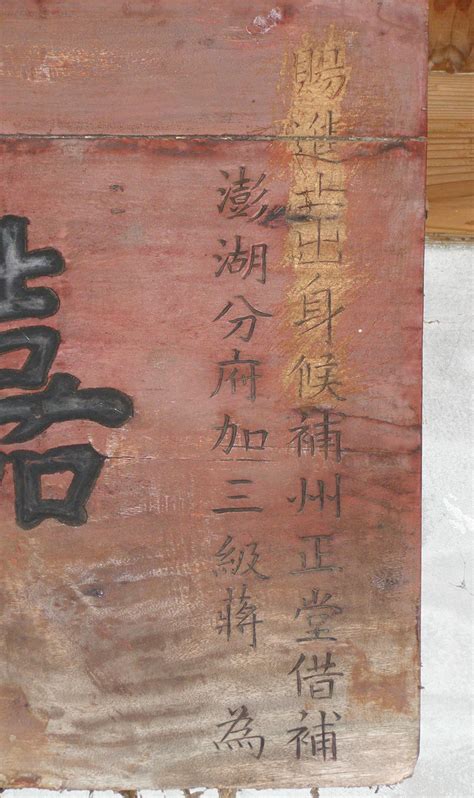 賜進士出身候補州正堂借補
澎湖分府加三級蔣　為